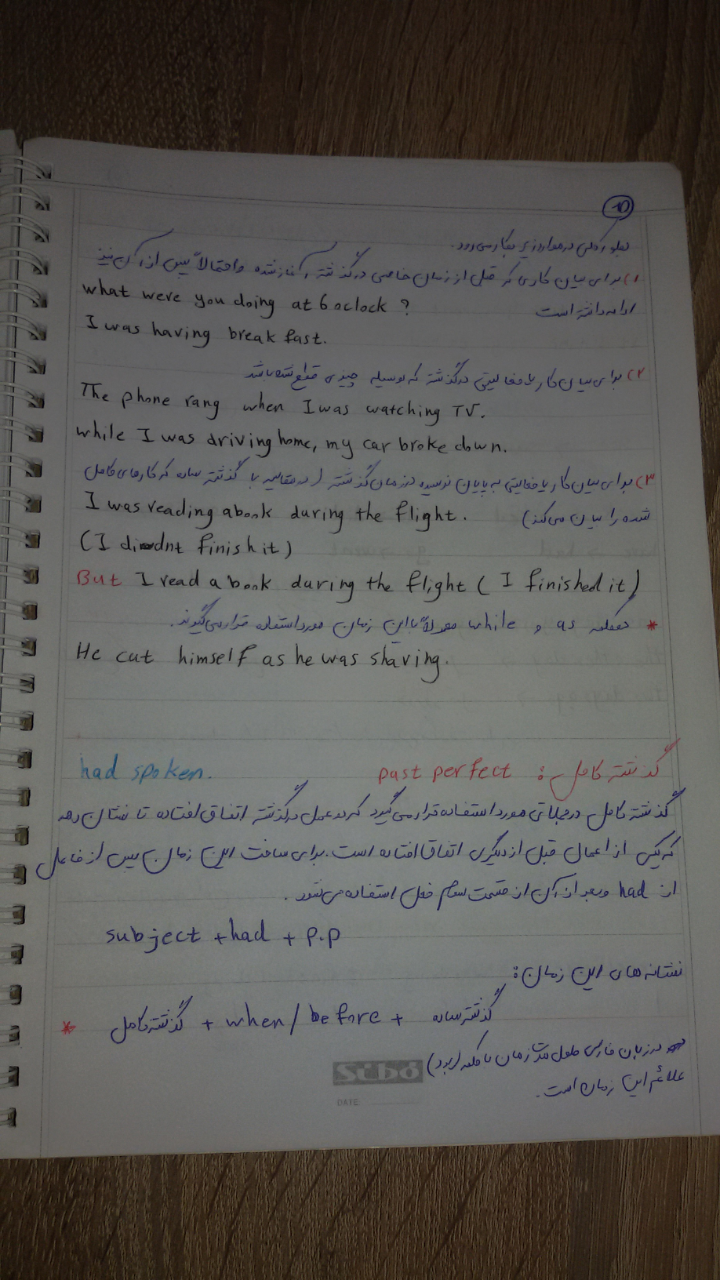 10
بطور کلی در موارد زیر بکار می‌رود.
۱) برای بیان کاری که قبل از زمان خاصی در گذشته آغاز شده و احتمالاً پس از آن نیز
ادامه داشته است
what were you doing at 6 oclock ?
I was having break fast.
۲) برای بیان کار یا فعالیتی در گذشته که بوسیله چیزی قطع شده باشد
The phone rang when I was watching TV.
while I was driving home, my car broke down.
۳) برای بیان کار یا فعالیتی به پایان نرسیده در زمان گذشته (در مقایسه با گذشته ساده که کارهای کامل
شده را بیان می‌کند)
I was reading a book during the flight.
(I didnt finish it)
But I read a book during the flight ( I finished it)
* as و while معمولاً با این زمان مورد استفاده قرار می‌گیرند.
He cut himself as he was shaving.
گذشته کامل : past perfect had spoken.
گذشته کامل در جملاتی مورد استفاده قرار می‌گیرد که دو عمل در گذشته اتفاق افتاده تا نشان دهد
که یکی از اعمال قبل از دیگری اتفاق افتاده است. برای ساخت این زمان پس از فاعل
از had و بعد از آن از قسمت سوم فعل استفاده می‌شود.
subject + had + p.p
نشانه های این زمان:
* گذشته کامل + when / before + گذشته ساده
در زبان فارسی زمان با کلمه (بود)
علائم این زمان است.
Scbo
DATE: